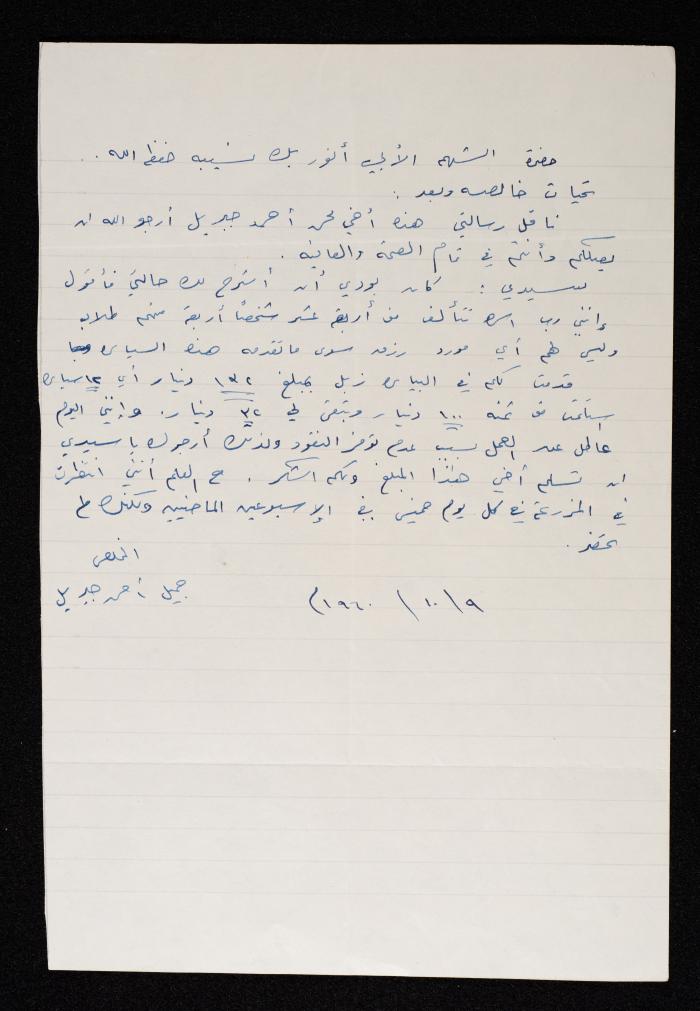 حضرة الشهم الأبي أنور بك نسيبه حفظه الله ..
تحيات خالصه وبعد :
ناقل رسالتي هذه أخي محمد أحمد جبريل أرجو الله ان
يصلكم وأنتم في تمام الصحة والعافيه .
سيدي : كان بودي أن أشرح لك حالتي فأقول
إنني رب اسره تتألف من أربعة عشر شخصاً أربعة منهم طلاب
وليس لهم أي مورد رزق سوى ما تقدمه هذه السيارة
قدمت لكم في البيارة زبل بمبلغ ١٣٢ دينار أي ١٢ سيارة
استلمت من ثمنه ١٠٠ دينار وتبقى لي ٣٢ دينار. وإنني اليوم
عاطل عن العمل بسبب عدم توفر النقود ولذلك أرجوك يا سيدي
ان تسلم أخي هذا المبلغ ولكم الشكر . مع العلم أنني انتظرت
في المزرعة في كل يوم خميس في الإسبوعين الماضيين ولكنك لم
تحضر .
المخلص
جميل أحمد جبريل
٩ / ١٠ / ١٩٦٠م